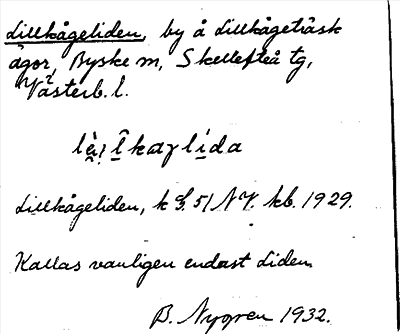 Lillkågeliden, by å Lillkågeträsk
ägor, Byske sn, Skellefteå tg,
Västerb. l.
Lillkågeliden, k bl. 51 NV. kb. 1929.
Kallas vanligen endast Liden
B. Nygren 1932.